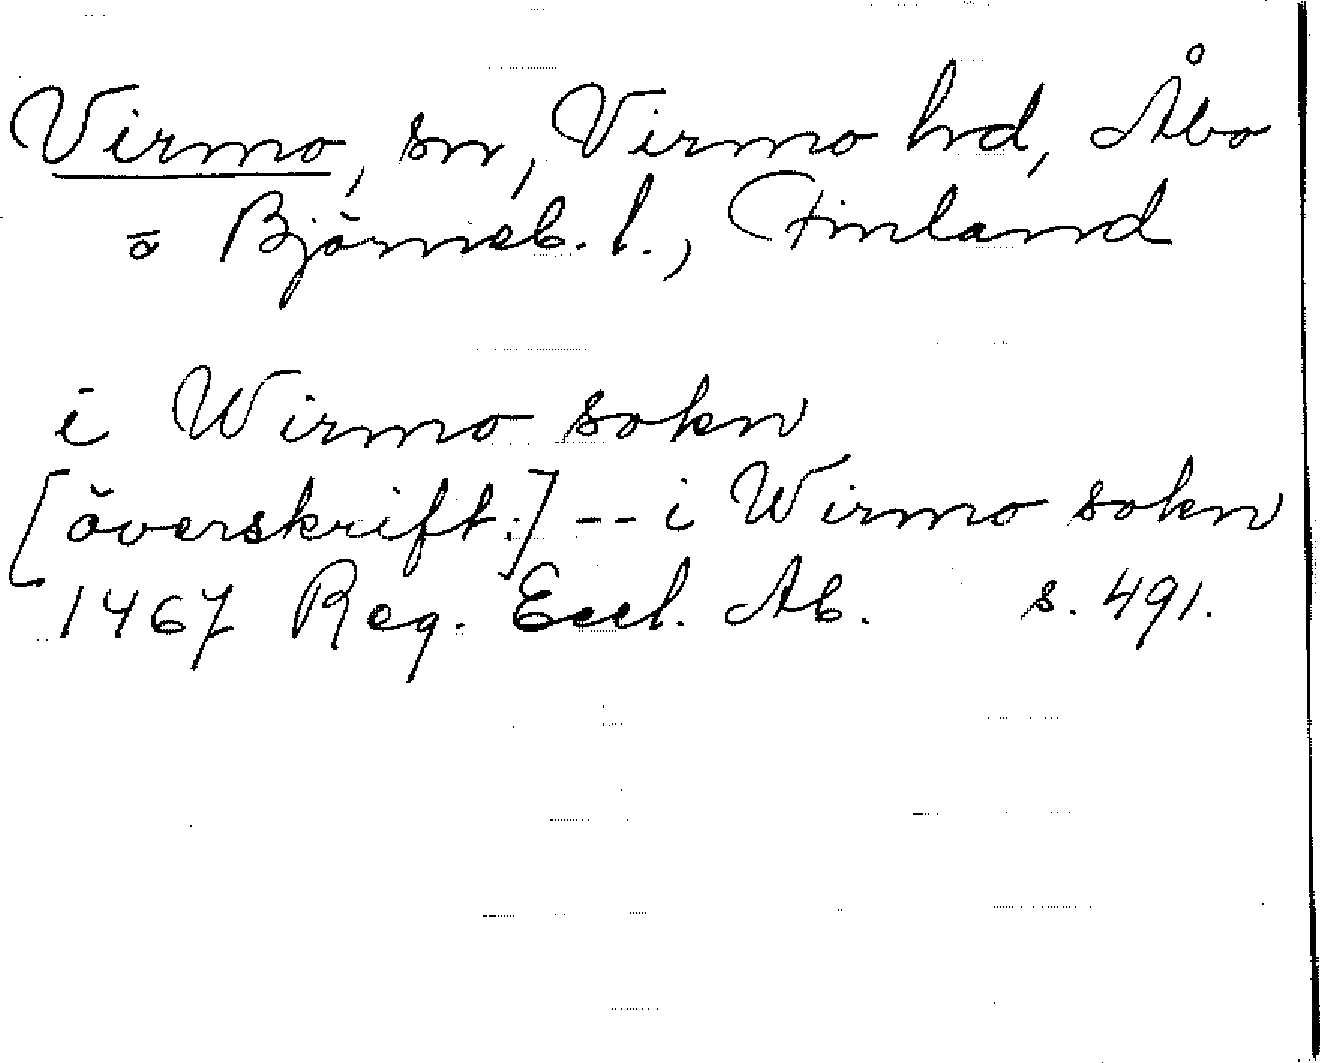 Virmo, sn, Virmo hd, Åbo
o Björneb. l., Finland
i Wirmo sokn
[överskrift:] -- i Wirmo sokn
1467 Reg. Eccl. Ab. s. 491.